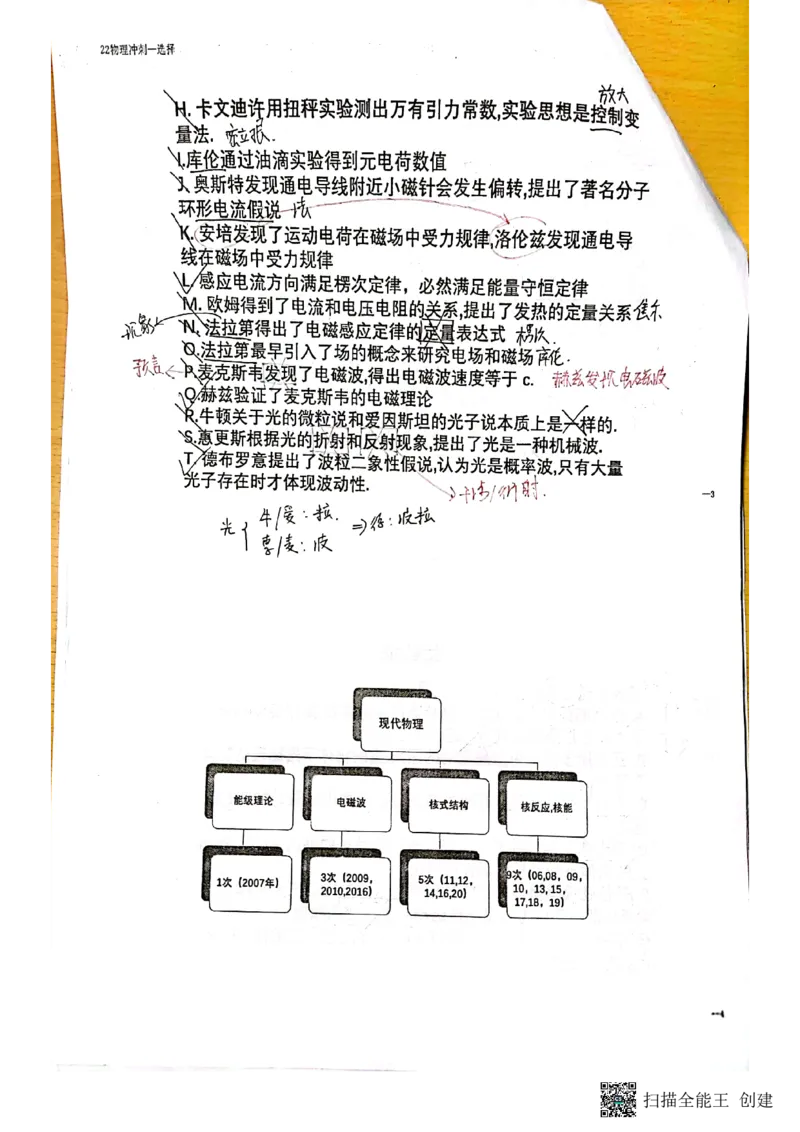 22物理冲刺一选择
放大
H. 卡文迪许用扭秤实验测出万有引力常数,实验思想是控制变
量法. 密立根.
I.库伦通过油滴实验得到元电荷数值
J. 奥斯特发现通电导线附近小磁针会发生偏转,提出了著名分子
环形电流假说
K. 安培发现了运动电荷在磁场中受力规律,洛伦兹发现通电导
线在磁场中受力规律
L. 感应电流方向满足楞次定律，必然满足能量守恒定律
M. 欧姆得到了电流和电压电阻的关系,提出了发热的定量关系 焦尔
N. 法拉第得出了电磁感应定律的定量表达式 楞次.
O.法拉第最早引入了场的概念来研究电场和磁场
预言
P.麦克斯韦发现了电磁波,得出电磁波速度等于 c. 赫兹发现电磁波
Q.赫兹验证了麦克斯韦的电磁理论
R.牛顿关于光的微粒说和爱因斯坦的光子说本质上是一样的.
S.惠更斯根据光的折射和反射现象,提出了光是一种机械波.
T. 德布罗意提出了波粒二象性假说,认为光是概率波,只有大量
光子存在时才体现波动性.
—3
光 { 牛/爱：粒.
惠/麦：波
⇒德：波粒
现代物理
能级理论
电磁波
核式结构
核反应,核能
1次（2007年）
3次（2009，
2010,2016）
5次（11,12，
14,16,20）
9次（06,08，09，
10，13,15，
17,18，19）
—4
扫描全能王 创建